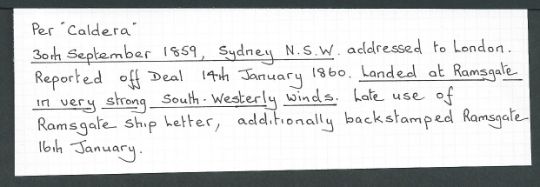 Per "Caldera"
30th September 1859, Sydney N.S.W. addressed to London.
Reported off Deal 14th January 1860. Landed at Ramsgate
in very strong South-Westerly Winds. Late use of
Ramsgate Ship Letter, additionally backstamped Ramsgate
16th January.